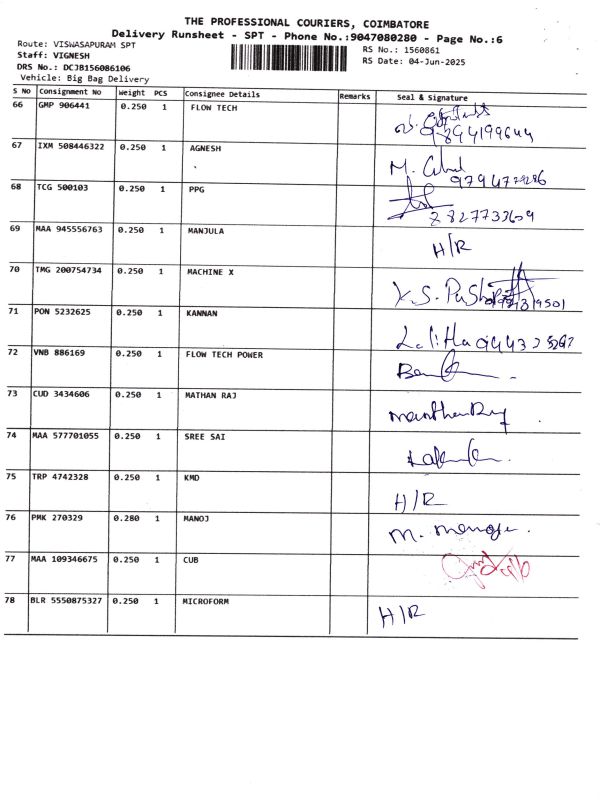 THE PROFESSIONAL COURIERS, COIMBATORE
Delivery Runsheet - SPT - Phone No.:9047080280 - Page No.:6
Route: VISWASAPURAM SPT
RS No.: 1560861
Staff: VIGNESH
RS Date: 04-Jun-2025
DRS No.: DCJB156086106
Vehicle: Big Bag Delivery
S No Consignment No Weight PCS Consignee Details Remarks Seal & Signature
66 GMP 906441 0.250 1 FLOW TECH
9894199644
67 IXM 508446322 0.250 1 AGNESH M.
68 TCG 500103 0.250 1 PPG
69 MAA 945556763 0.250 1 MANJULA H/R
70 TMG 200754734 0.250 1 MACHINE X
71 PON 5232625 0.250 1 KANNAN Lalitha
72 VNB 886169 0.250 1 FLOW TECH POWER
73 CUD 3434606 0.250 1 MATHAN RAJ
74 MAA 577701055 0.250 1 SREE SAI
75 TRP 4742328 0.250 1 KMD H/R
76 PMK 270329 0.280 1 MANOJ M.
77 MAA 109346675 0.250 1 CUB
78 BLR 5550875327 0.250 1 MICROFORM H/R